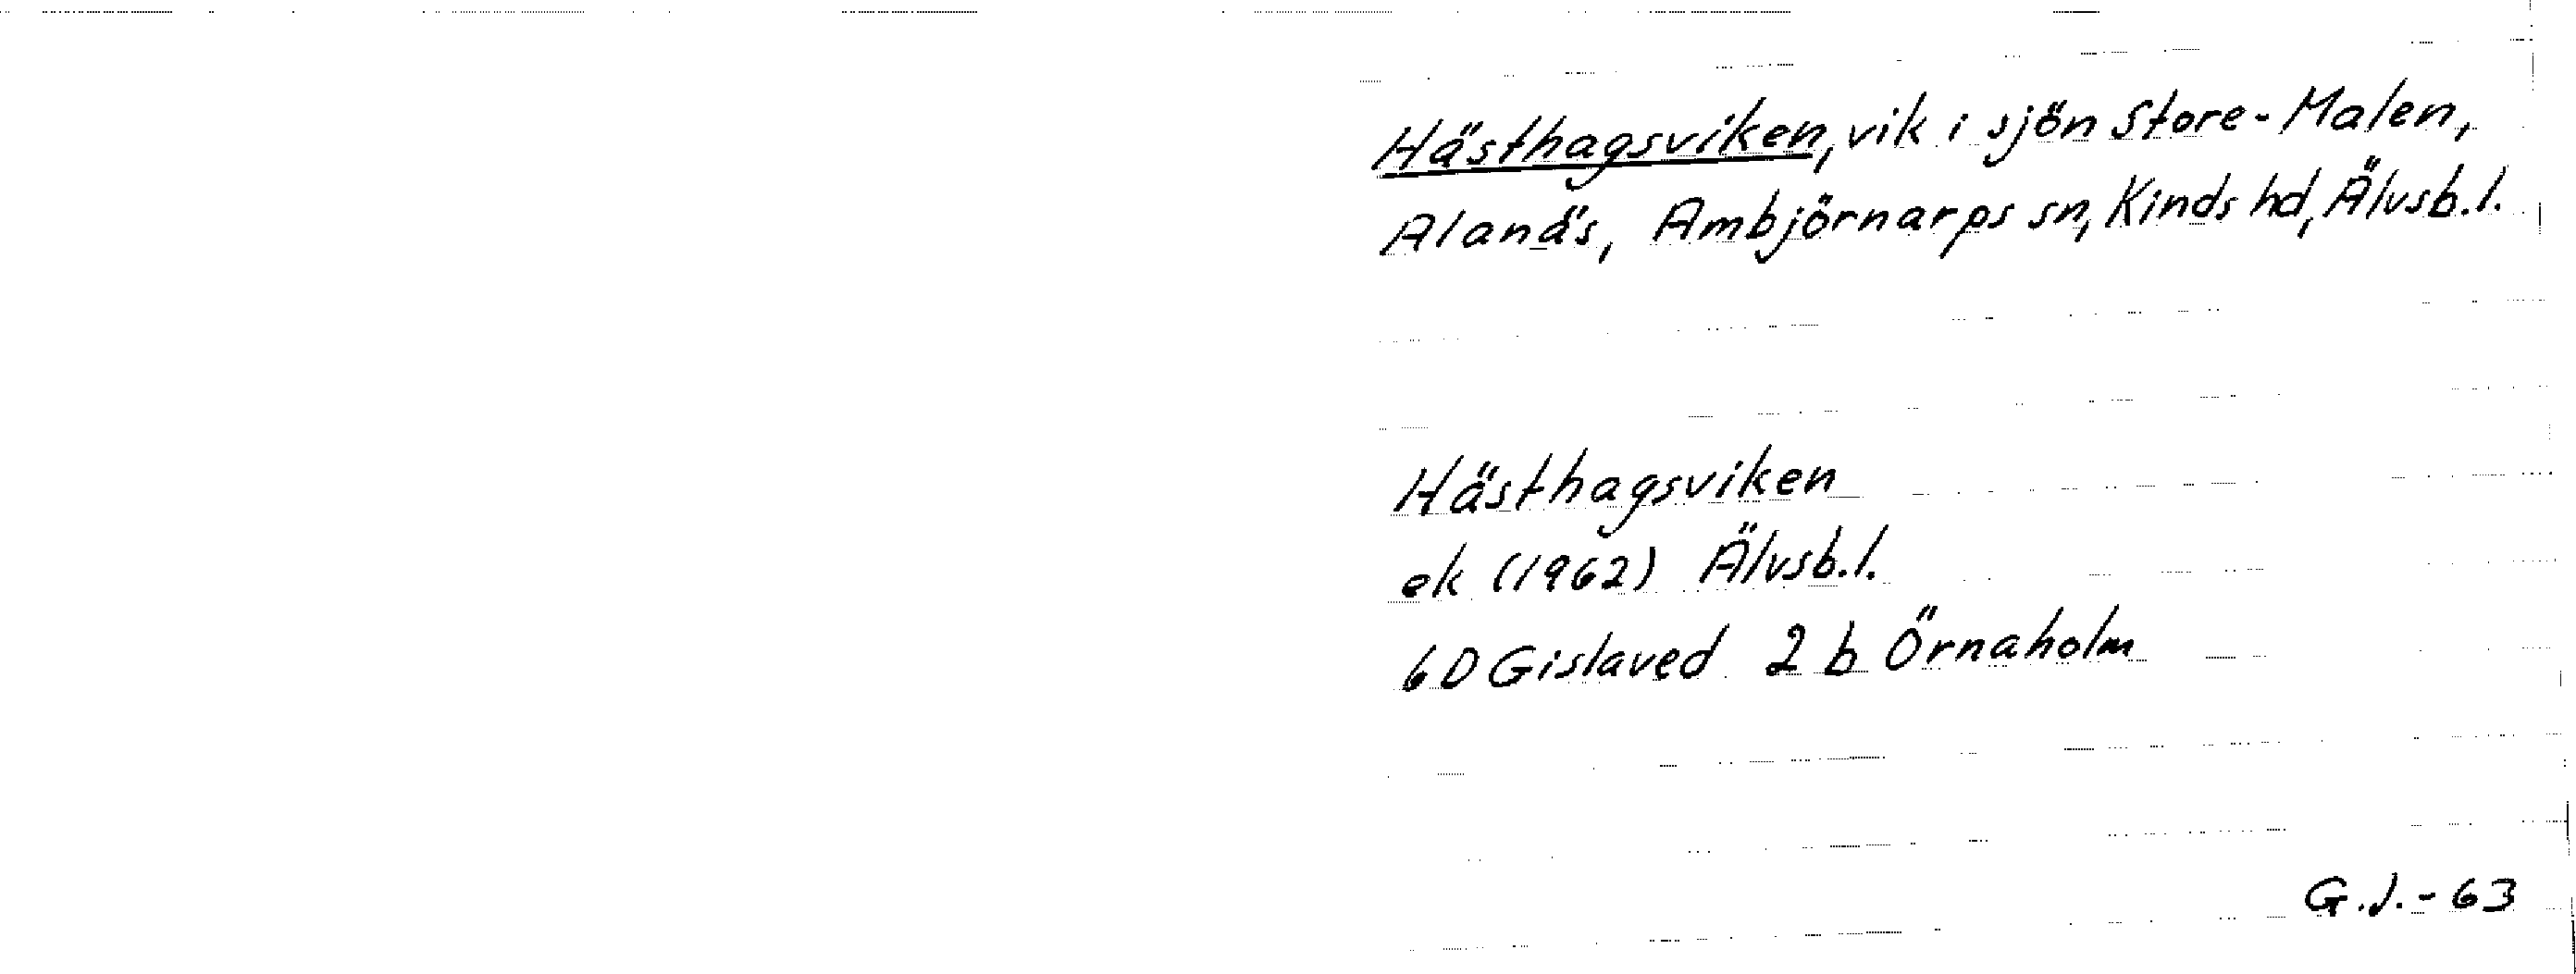 Hästhagsviken, vik i sjön Store-Malen,
Alanäs, Ambjörnarps sn, Kinds hd, Älvsb.l.
Hästhagsviken
ek (1962) Älvsb.l.
6D Gislaved 2 b Örnaholm
G.J.-63